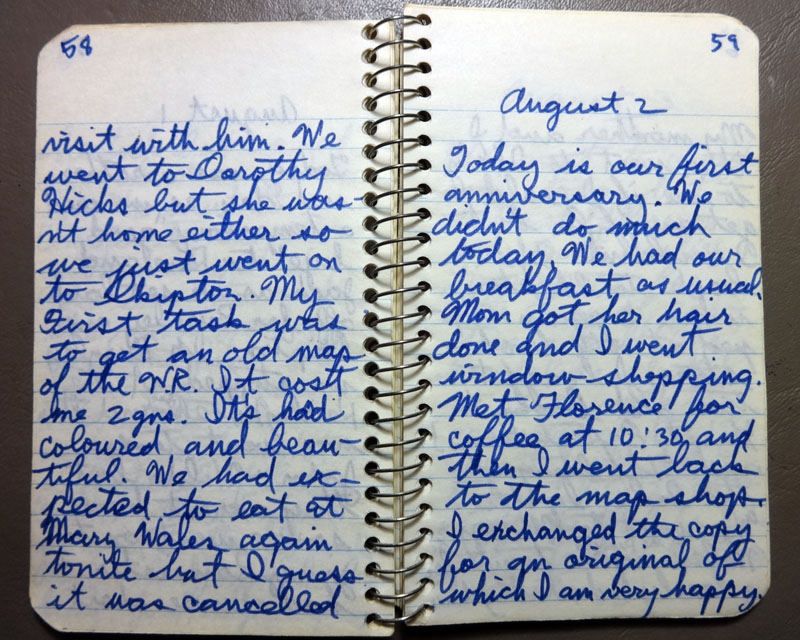 58
visit with him. We
went to Dorothy
Hicks but she was-
n't home either so
we just went on
to Skipton. My
First task was
to get an old map
of the WR. It cost
me 2 gns. It's had
coloured and beau-
tiful. We had ex-
pected to eat at
Mary Wafer again
tonite but I guess
it was cancelled
59
August 2
Today is our first
anniversary. We
didn't do much
today. We had our
breakfast as usual.
Mom got her hair
done and I went
window shopping.
Met Florence for
coffee at 10:30 and
then I went back
to the map shop.
I exchanged the copy
for an original of
which I am very happy.